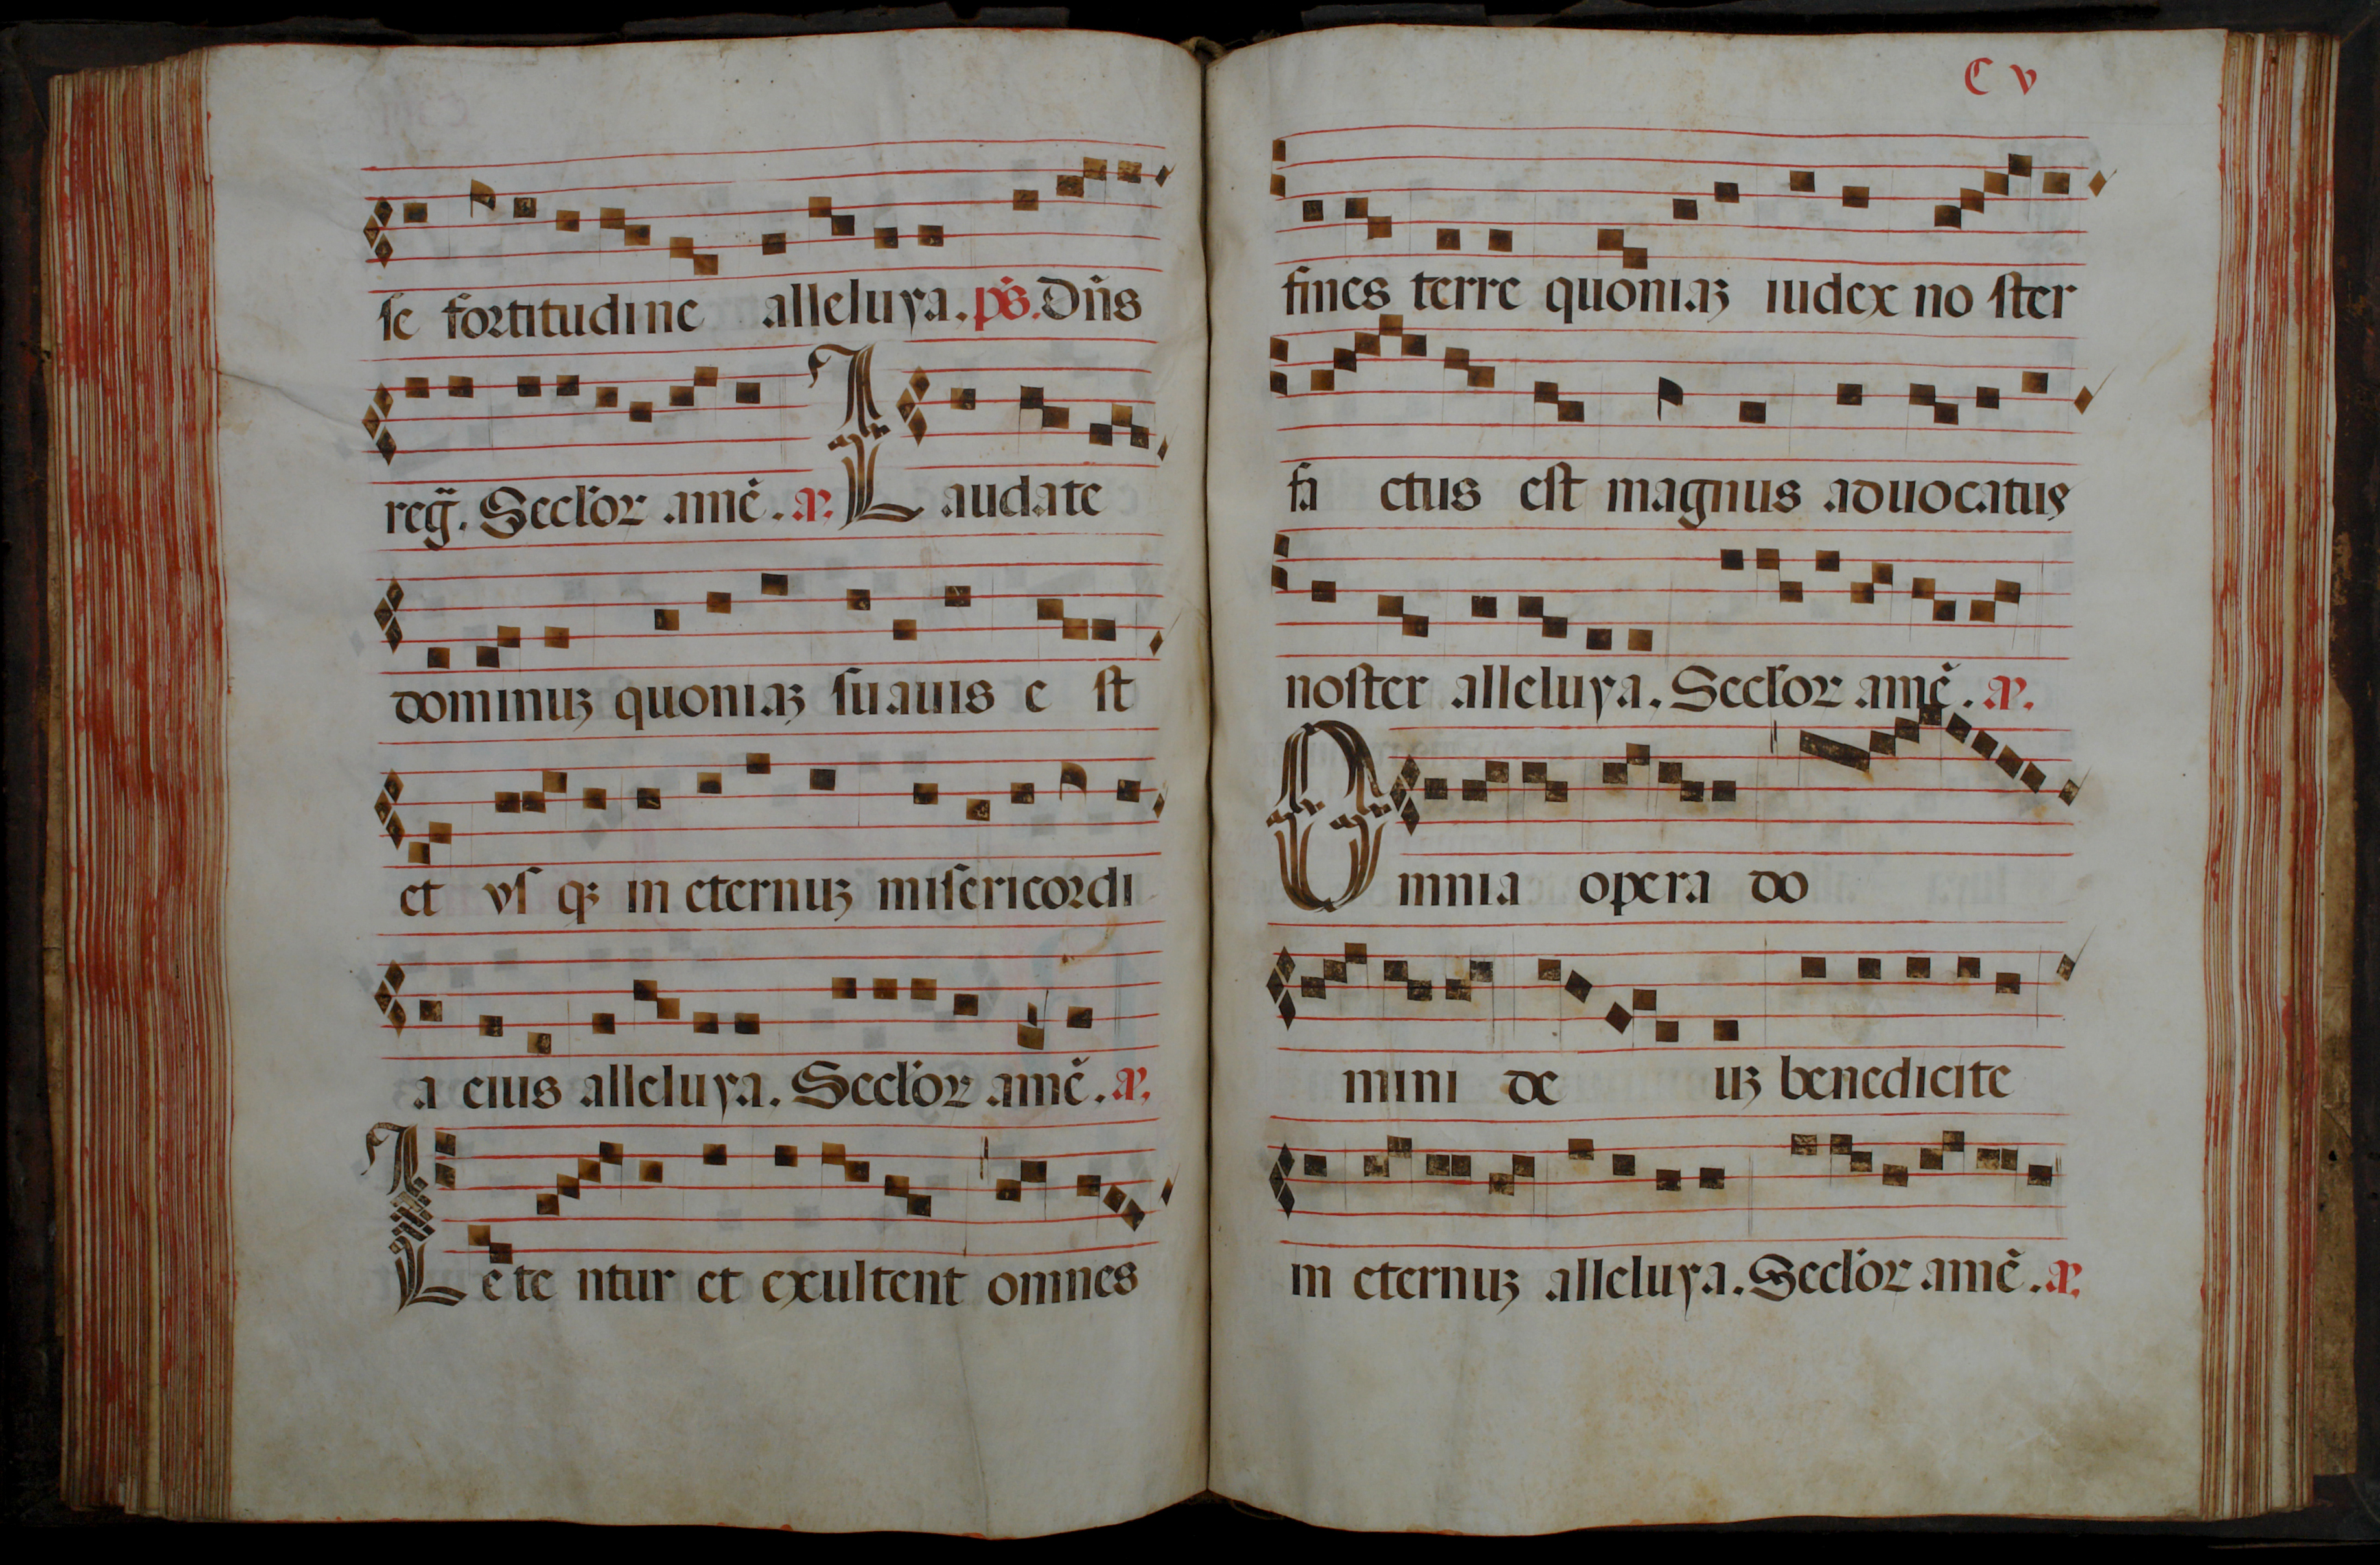 se fortitudine alleluya. p̄s. Dn̄s
reg̃. Secl'oꝝ amē. a.
Laudate
dominuꝫ quoniaꝫ suauis e st
et vs qꝫ in eternuꝫ misericordi
a eius alleluya. Secl'oꝝ amē. a.
Lete ntur et exultent omnes
C v
fines terre quoniaꝫ iudex no ster
fa ctus est magnus aduocatus
noster alleluya. Secl'oꝝ amē. a.
Omnia opera do
mini de uꝫ benedicite
in eternuꝫ alleluya. Secl'oꝝ amē. a.